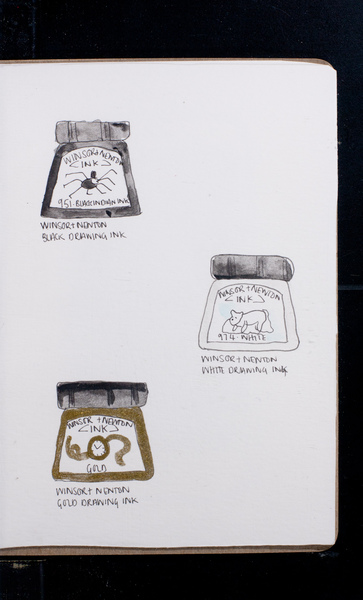 WINSOR+NEWTON
INK
951·BLACK INDIAN INK
WINSOR+NEWTON
BLACK DRAWING INK
WINSOR+NEWTON
INK
974·WHITE
WINSOR+NEWTON
WHITE DRAWING INK
WINSOR+NEWTON
INK
GOLD
WINSOR+ NEWTON
GOLD DRAWING INK